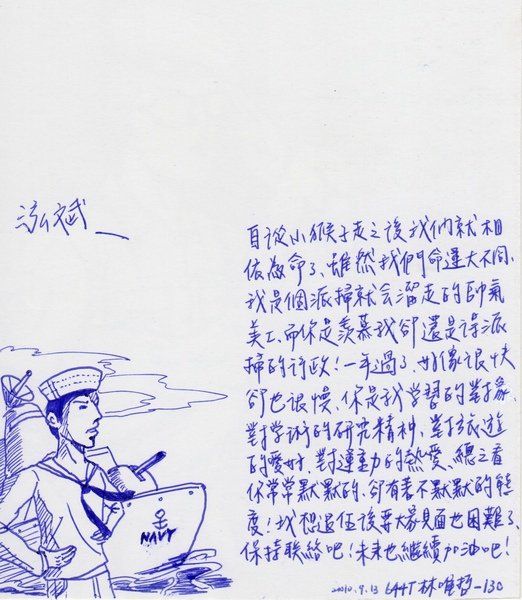 泓斌
自從小猴子走之後我們就相
依為命了、雖然我們命運大不同、
我是個派掃就会溜走的帥氣
美工、而你是羨慕我卻還是得派
掃的行政！一年過了、好像很快
卻也很慢、你是我學習的對象、
對學術的研究精神、對於旅遊
的愛好、對運動的熱愛、總之看
你常常默默的、卻有著不默默的態
度！我想退伍後要大家見面也困難了、
保持聯絡吧！未來也繼續加油吧！
2010.9.13 644T 林唯哲-130
NAVY